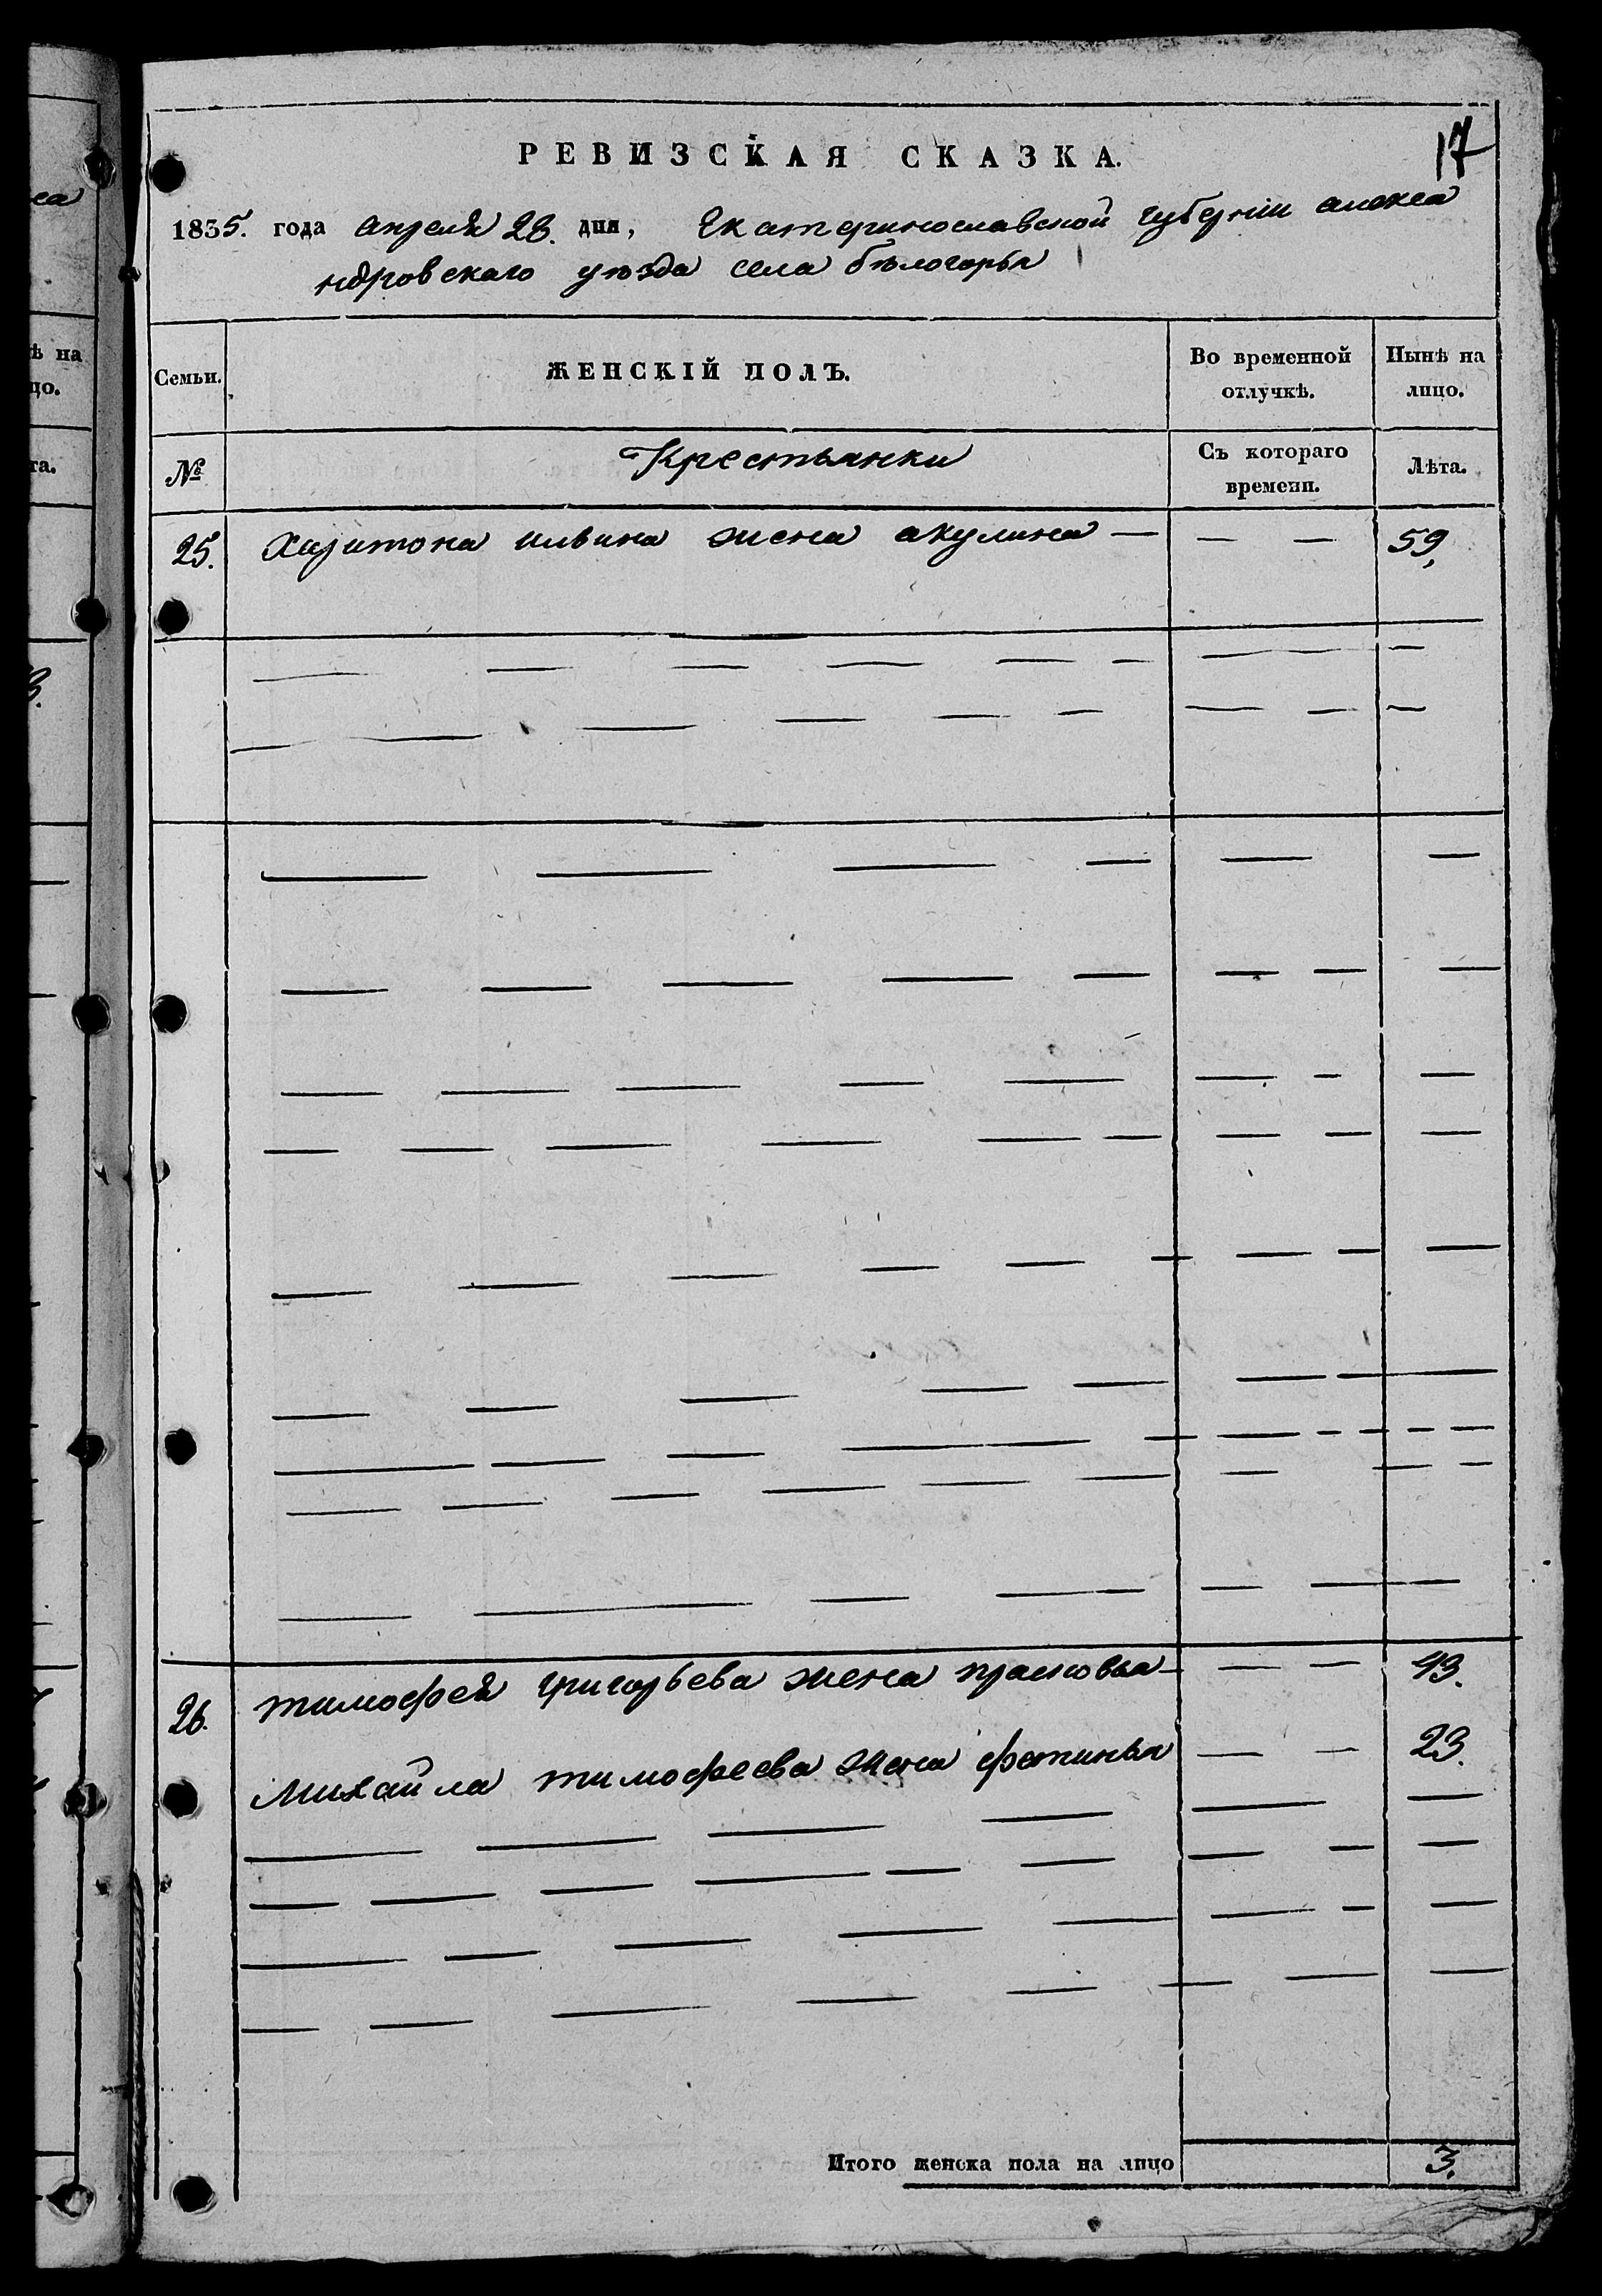 17
РЕВИЗСКАЯ СКАЗКА.
1835. года апреля 28. дня, Екатеринославской губернiи алекса
ндровскаго уѣзда села бѣлогорья
Семьи. ЖЕНСКIЙ ПОЛЪ. Во временной отлучкѣ. Нынѣ на лицо.
№ Крестьянки Съ котораго времени. Лѣта.
25. Харитона ильина жена акулина — — — 59,
26. тимофея григорьева жена прасковья — — — 43.
Михайла тимофеева жена фетинья — — 23.
Итого женска пола на лицо 3.